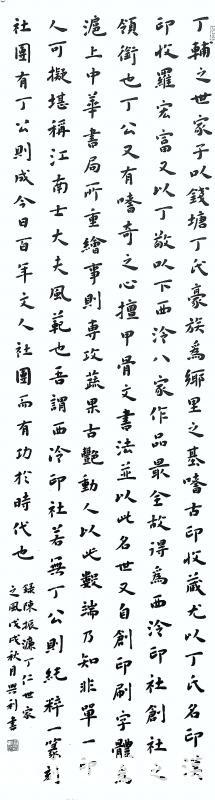 丁輔之世家子以錢塘丁氏豪族為鄉里之基嗜古印收藏尤以丁氏名印漢
印收羅宏富又以丁敬以下西泠八家作品最全故得為西泠印社創社之
領銜也丁公又有嗜奇之心擅甲骨文書法並以此名世又自創印刷字體為
滬上中華書局所重繪事則專攻蔬果古艷動人以此數端乃知非單一印
人可擬堪稱江南士大夫風範也吾謂西泠印社若無丁公則純粹一篆刻
社團有丁公則成今日百年文人社團而有功於時代也
錄陳振濂丁仁世家
之風戊戌秋月興利書